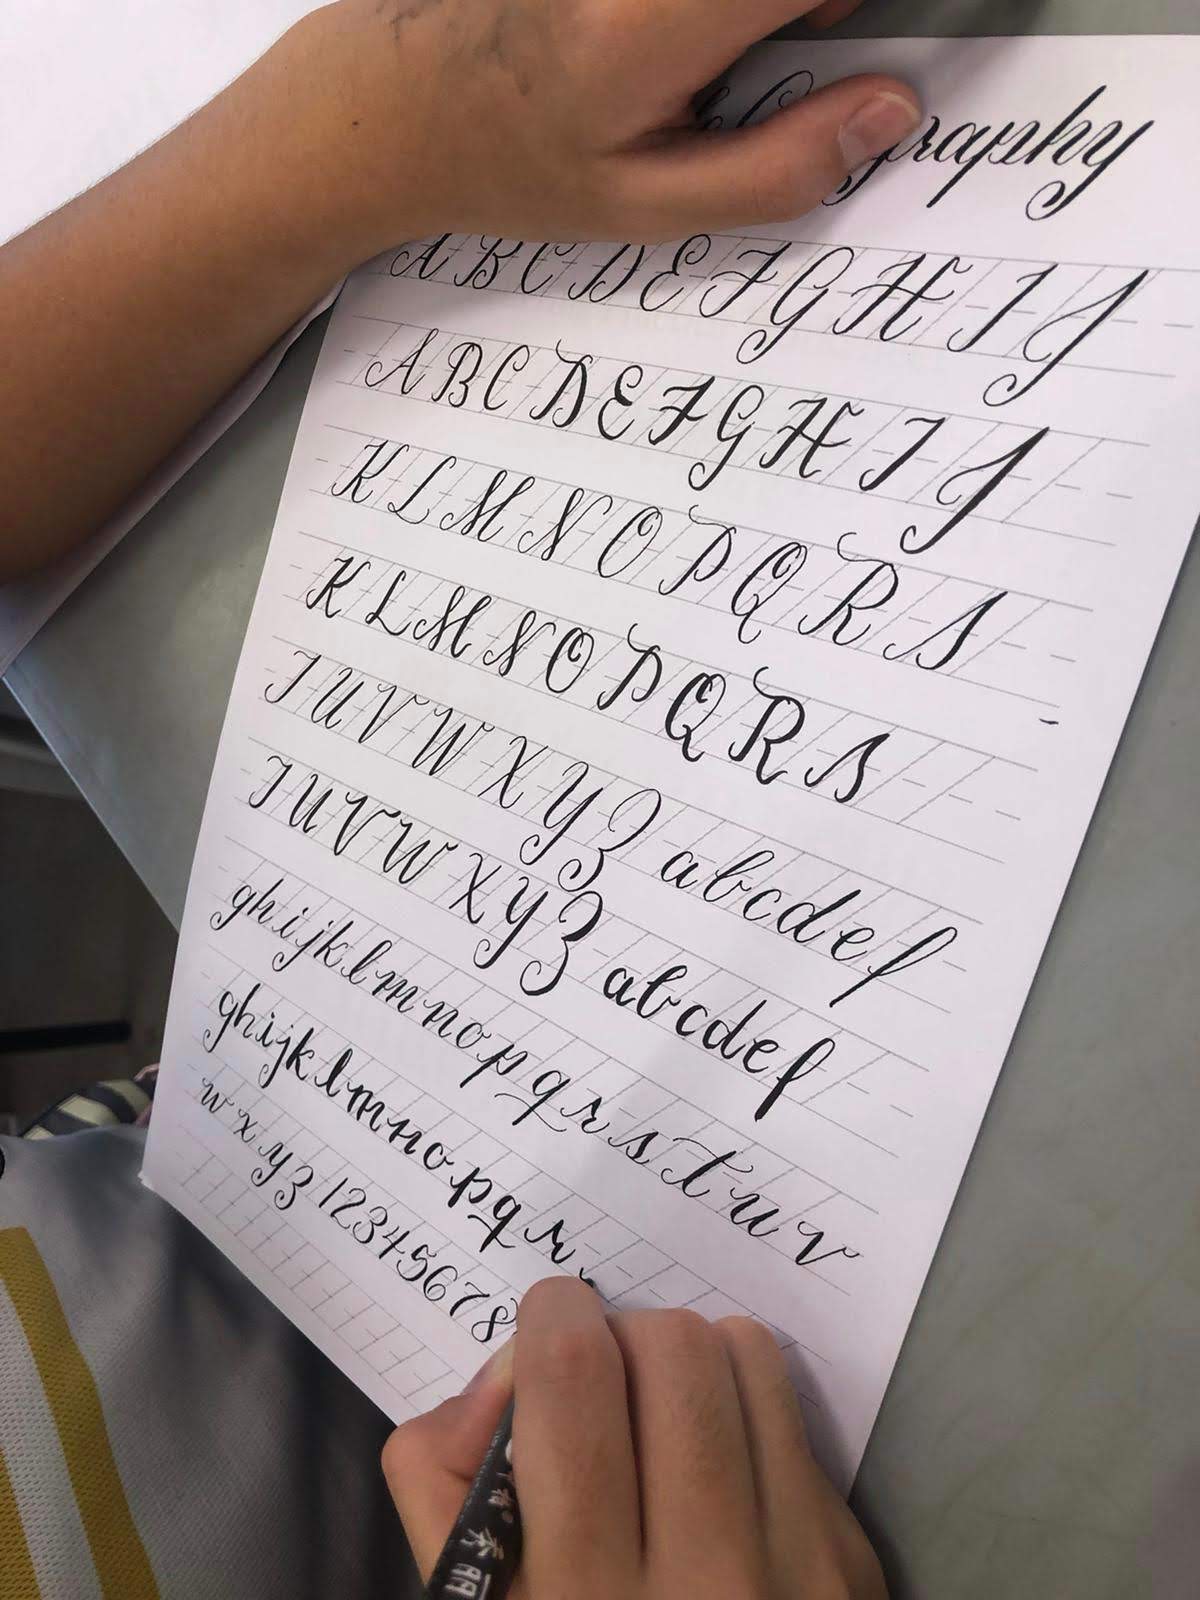 A B C D E F G H I J
A B C D E F G H I J
K L M N O P Q R S
K L M N O P Q R S
T U V W X Y Z a b c d e f
T U V W X Y Z a b c d e f
g h i j k l m n o p q r s t u v
g h i j k l m n o p q r
w x y z 1 2 3 4 5 6 7 8